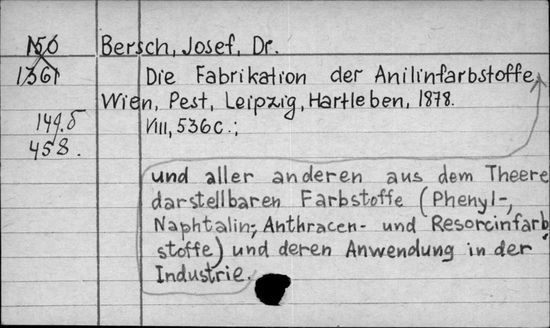 156 Bersch, Josef, Dr.
1361 Die Fabrikation der Anilinfarbstoffe
Wien, Pest, Leipzig, Hartleben, 1878.
149.5 VIII, 536 c.;
458.
und aller anderen aus dem Theere
darstellbaren Farbstoffe (Phenyl-,
Naphtalin-, Anthracen- und Resorcinfarb
stoffe) und deren Anwendung in der
Industrie.